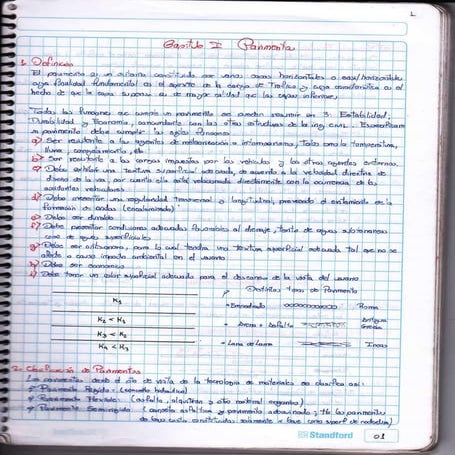 Capitulo I Pavimento
1. Definicion
El pavimento es un sistema constituido por varias capas horizontales o casi/horizontales
cuya finalidad fundamental es el soporte de la carga de Trafico y cuya caracteristica es el
hecho de que la capa superior es de mayor calidad que las capas inferiores.
Todas las funciones que cumple un pavimento se pueden resumir en 3: Estabilidad,
Durabilidad y Economia, concordante con las otras estructuras de la ing. civil.
un pavimento debe cumplir las sgtes funciones
a) Ser resistente a los agentes de meteorizacion o intemperismo, Tales como la temperatura,
lluvia, congelamiento, etc
b) Ser resistente a las cargas impuestas por los vehiculos y los otros agentes externos.
c) Debe exhibir una textura superficial adecuada, de acuerdo a la velocidad directriz de
diseño de la via, por cuanto ella esta relacionada directamente con la ocurrencia de los
accidentes vehiculares
d) Debe presentar una regularidad transversal y longitudinal, previendo el
formacion de ondas
e) Debe ser durable
f) Debe presentar condiciones adecuadas favorables al drenaje, tanto de aguas subterraneas
como de aguas superficiales
g) Debe ser silencioso, para lo cual tendra una textura superficial adecuada tal que no se
afecte o cause impacto ambiental en el usuario
h) Debe ser economico
i) Debe tener un color superficial adecuado para el descanso de la vista del usuario
Distintos tipos de Pavimento
K1
K2 < K1
K3 < K2
K4 < K3
• Empedrado Roma
• Arena + Asfalto Antigua
Grecia
Incas
2.- Clasificacion de Pavimentos
Los pavimentos desde el pto de vista de la tecnologia de materiales se clasifica asi:
Pavimento Rigido: (concreto hidraulico)
Pavimento Flexible: (asfalto, alquitran y otro material organico)
Pavimento Semirigido: (carpeta asfaltica y pavimento adoquinado;
Standford 01